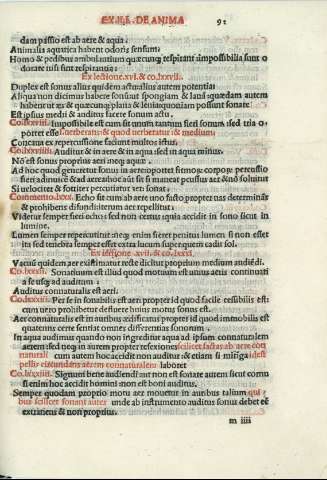 EX .II. DE ANIMA 91
dam passio est ab aere & aqua.
Animalia aquatica habent odoris sensum:
Homo & pedibus ambulantium quæcunq; respirant impossibilia sunt o
dorare nisi sint respirantia:
Ex lectione .xvii. & co. lxxvii.
Duplex est sonus alius quidem actu alius autem potentia:
Aliqua non dicimus habere sonum ut spongiam & lana quædam autem
habent ut æs & quæcunq; plana & lenia quoniam possunt sonare:
Est ipsius medii & auditus facere sonum actu.
Co. lxxviii. Impossibile est cum sit unum tantum fieri sonum sed duo o
portet esse uerberans: & quod uerberatur: & medium:
Concaua ex repercussione faciunt multos ictus:
Co. lxxviiii. Auditur & in aere & in aqua sed in aqua minus.
Nō est sonus proprius aeri ineq; aquæ.
Ad hoc quod generetur sonus in aere oportet firmor; corpor; percussio
fieri adinuicē & ad aerem hoc aūt fit si maneat pulsus aer & nō soluitur
Si uelociter & fortiter percutiatur aer sonat:
Commento. lxxx. Echo fit cum ab aere uno facto propter uas determinās
& prohibens diffundi iterum aer repellitur:
Videtur semper fieri echo: sed non certus quia accidit in sono sicut in
lumine.
Lumen semper repercutitur ineq; enim fieret penitus lumen si non esset
ita sed tenebra semper esset extra lucum superquem cadit sol.
Ex lectione .xvii. & co. lxxxi
Vacuū quidem aer existimatur recte dicitur proprium medium audiēdi.
Co. lxxxii. Sonatiuum est illud quod motiuum est unius aeris continuati
a se usq; ad auditum:
Auditui connaturalis est aeri.
Co. lxxxiii. Per se in sonabilis est aer: propter id quod facile cessibilis est:
cum uero prohibetur defluere huius motus sonus est.
Aer connaturalis est in auribus edificatus propter id quod immobilis est
quatenus certe sentiat omnes differentias sonorum.
In aqua audimus quando non ingreditur aqua ad ipsum connaturalem
aerem sed neq; in aurem propter reflexiones
naturali cum autem hoc accidit non auditur: & etiam si miringa idest
pellis circundans aerem connaturalem laboret
Co. lxxxiiii. Signum bene audiendi aut non est sonare autem sicut cornu
si enim hoc accidit homini non est boni auditus.
Semper quodam proprio motu aer mouetur in auribus talium qui
bus scilicet sonant aures unde ab instrumento auditus sonus debet eē
extraneus & non proprius.
m iiii